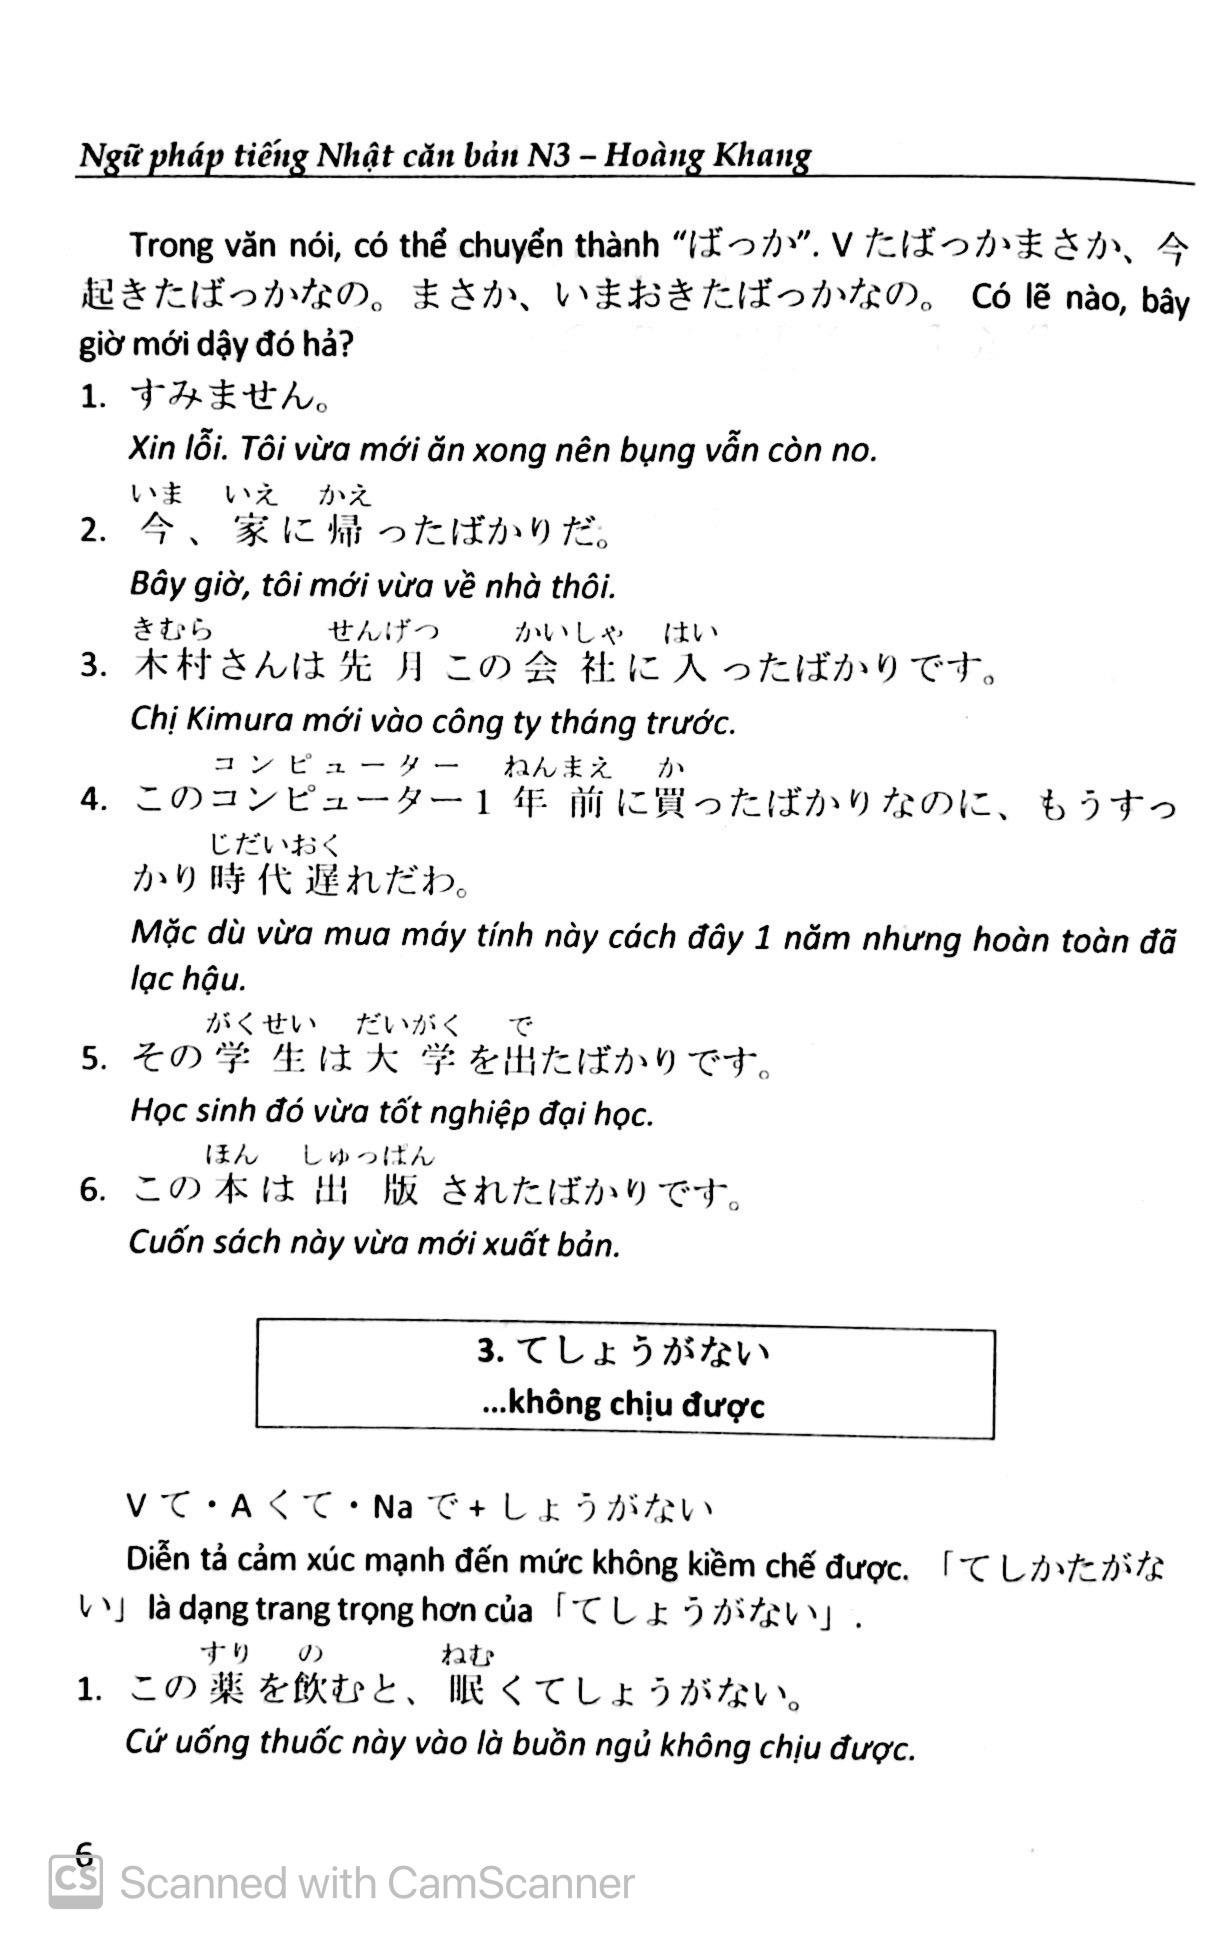 Ngữ pháp tiếng Nhật căn bản N3 – Hoàng Khang
Trong văn nói, có thể chuyển thành “ばっか”. V たばっかまさか、今
起きたばっかなの。まさか、いまおきたばっかなの。 Có lẽ nào, bây
giờ mới dậy đó hả?
1. すみません。
Xin lỗi. Tôi vừa mới ăn xong nên bụng vẫn còn no.
いま いえ かえ
2. 今、家に帰ったばかりだ。
Bây giờ, tôi mới vừa về nhà thôi.
きむら せんげつ かいしゃ はい
3. 木村さんは先月この会社に入ったばかりです。
Chị Kimura mới vào công ty tháng trước.
コンピューター ねんまえ か
4. このコンピューター1年前に買ったばかりなのに、もうすっ
じだいおく
かり時代遅れだわ。
Mặc dù vừa mua máy tính này cách đây 1 năm nhưng hoàn toàn đã
lạc hậu.
がくせい だいがく で
5. その学生は大学を出たばかりです。
Học sinh đó vừa tốt nghiệp đại học.
ほん しゅっぱん
6. この本は出版されたばかりです。
Cuốn sách này vừa mới xuất bản.
3. てしょうがない
...không chịu được
V て・A くて・Na で + しょうがない
Diễn tả cảm xúc mạnh đến mức không kiềm chế được. 「てしかたがな
い」 là dạng trang trọng hơn của 「てしょうがない」.
すり の ねむ
1. この薬を飲むと、眠くてしょうがない。
Cứ uống thuốc này vào là buồn ngủ không chịu được.
6
CS Scanned with CamScanner